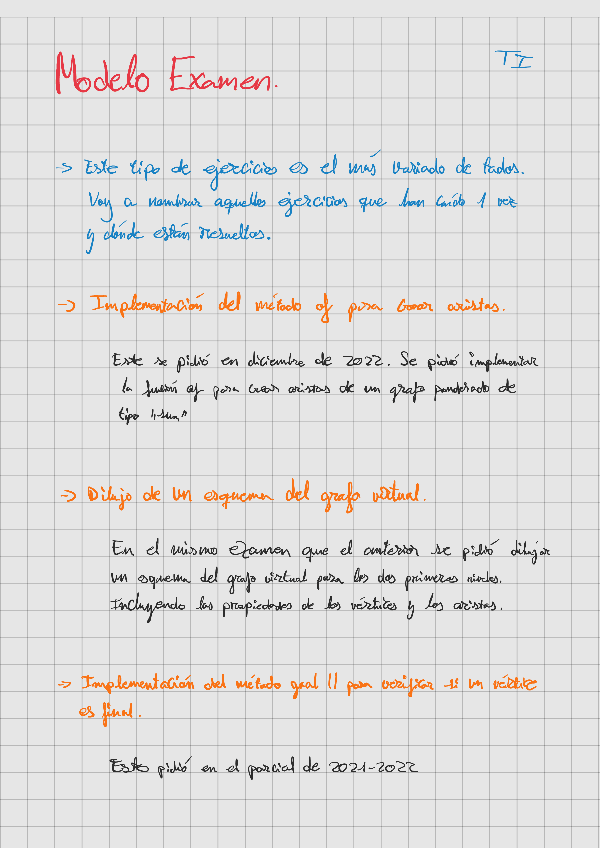 Modelo Examen.
TI
-> Este tipo de ejercicios es el más variado de todos.
Voy a nombrar aquellos ejercicios que han caído 1 vez
y dónde están resueltos.
-> Implementación del método of para crear aristas.
Este se pidió en diciembre de 2022. Se pidió implementar
la función of para crear aristas de un grafo ponderado de
tipo "sum"
-> Dibujo de un esquema del grafo virtual.
En el mismo examen que el anterior se pidió dibujar
un esquema del grafo virtual para los dos primeros niveles.
Incluyendo las propiedades de los vértices y las aristas.
-> Implementación del método goal () para verificar si un vértice
es final.
Esto pidió en el parcial de 2021-2022